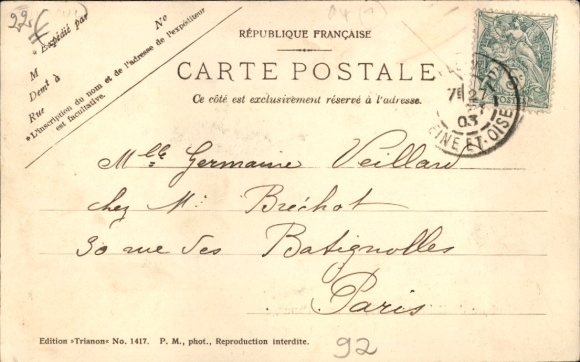 N°
* Expédié par
M
Demt à
Rue
*L'inscription du nom et de l'adresse de l'expéditeur
est facultative.
RÉPUBLIQUE FRANÇAISE
CARTE POSTALE
Ce côté est exclusivement réservé à l'adresse.
7E 27
03
SEINE-ET-OISE
Mlle Germaine Veillard
chez Mr Bréchot
30 rue des Batignolles
Paris
Edition »Trianon« No. 1417. P. M., phot., Reproduction interdite.
92